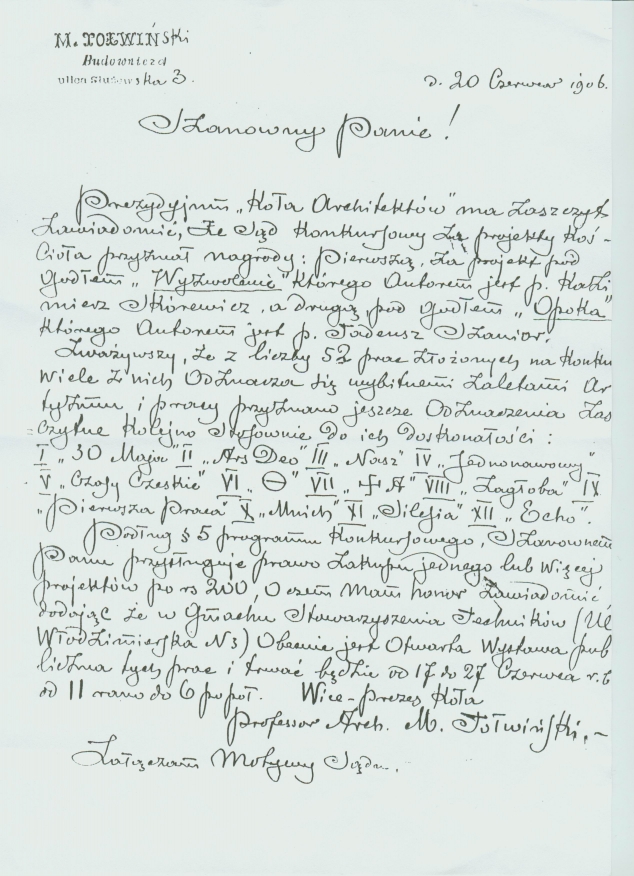 M. TOŁWIŃSki
Budowniczy
ulica Służewska 3.
d. 20 Czerwca 1906.
Szanowny Panie!
Prezydyjum „Koła Architektów" ma zaszczyt
Zawiadomić, że Sąd Konkursowy za projekty Koś-
cioła przyznał nagrody: Pierwszą, za projekt pod
Godłem „Wyzwolenie" którego Autorem jest p. Kazi
mierz Skórewicz, a drugą pod Godłem „Opoka"
którego Autorem jest p. Tadeusz Szanior.
Zważywszy, że z liczby 52 prac złożonych na Konku
Wiele z nich Odznacza się wybitnemi zaletami Ar
tyzmu i pracy przyznano jeszcze Odznaczenia zas
czytne Kolejno Stosownie do ich doskonałości:
I „30 Maja" II „Ars Deo" III „Nasz" IV „Jednonawowy"
V „Czasy Czeskie" VI „⊖" VII „卐 A" VIII „Zagłoba" IX
„Pierwsza Praca" X „Mnich" XI „Silesia" XII „Echo".
Podług § 5 programu Konkursowego, Szanownem
Panu przysługuje prawo Zakupu jednego lub więcej
projektów po rs 200, O czem mam honor Zawiadomić
dodając że w Gmachu Stowarzyszenia Techników (Ul
Włodzimierska N 3) Obecnie jest Otwarta Wystawa pub
liczna tych prac i trwać będzie od 17 do 27 Czerwca r. b
od 11 rano do 6 po poł. Wice-prezes Koła
Professor Arch. M. Tołwiński.–
Załączam Motywy Sądu.